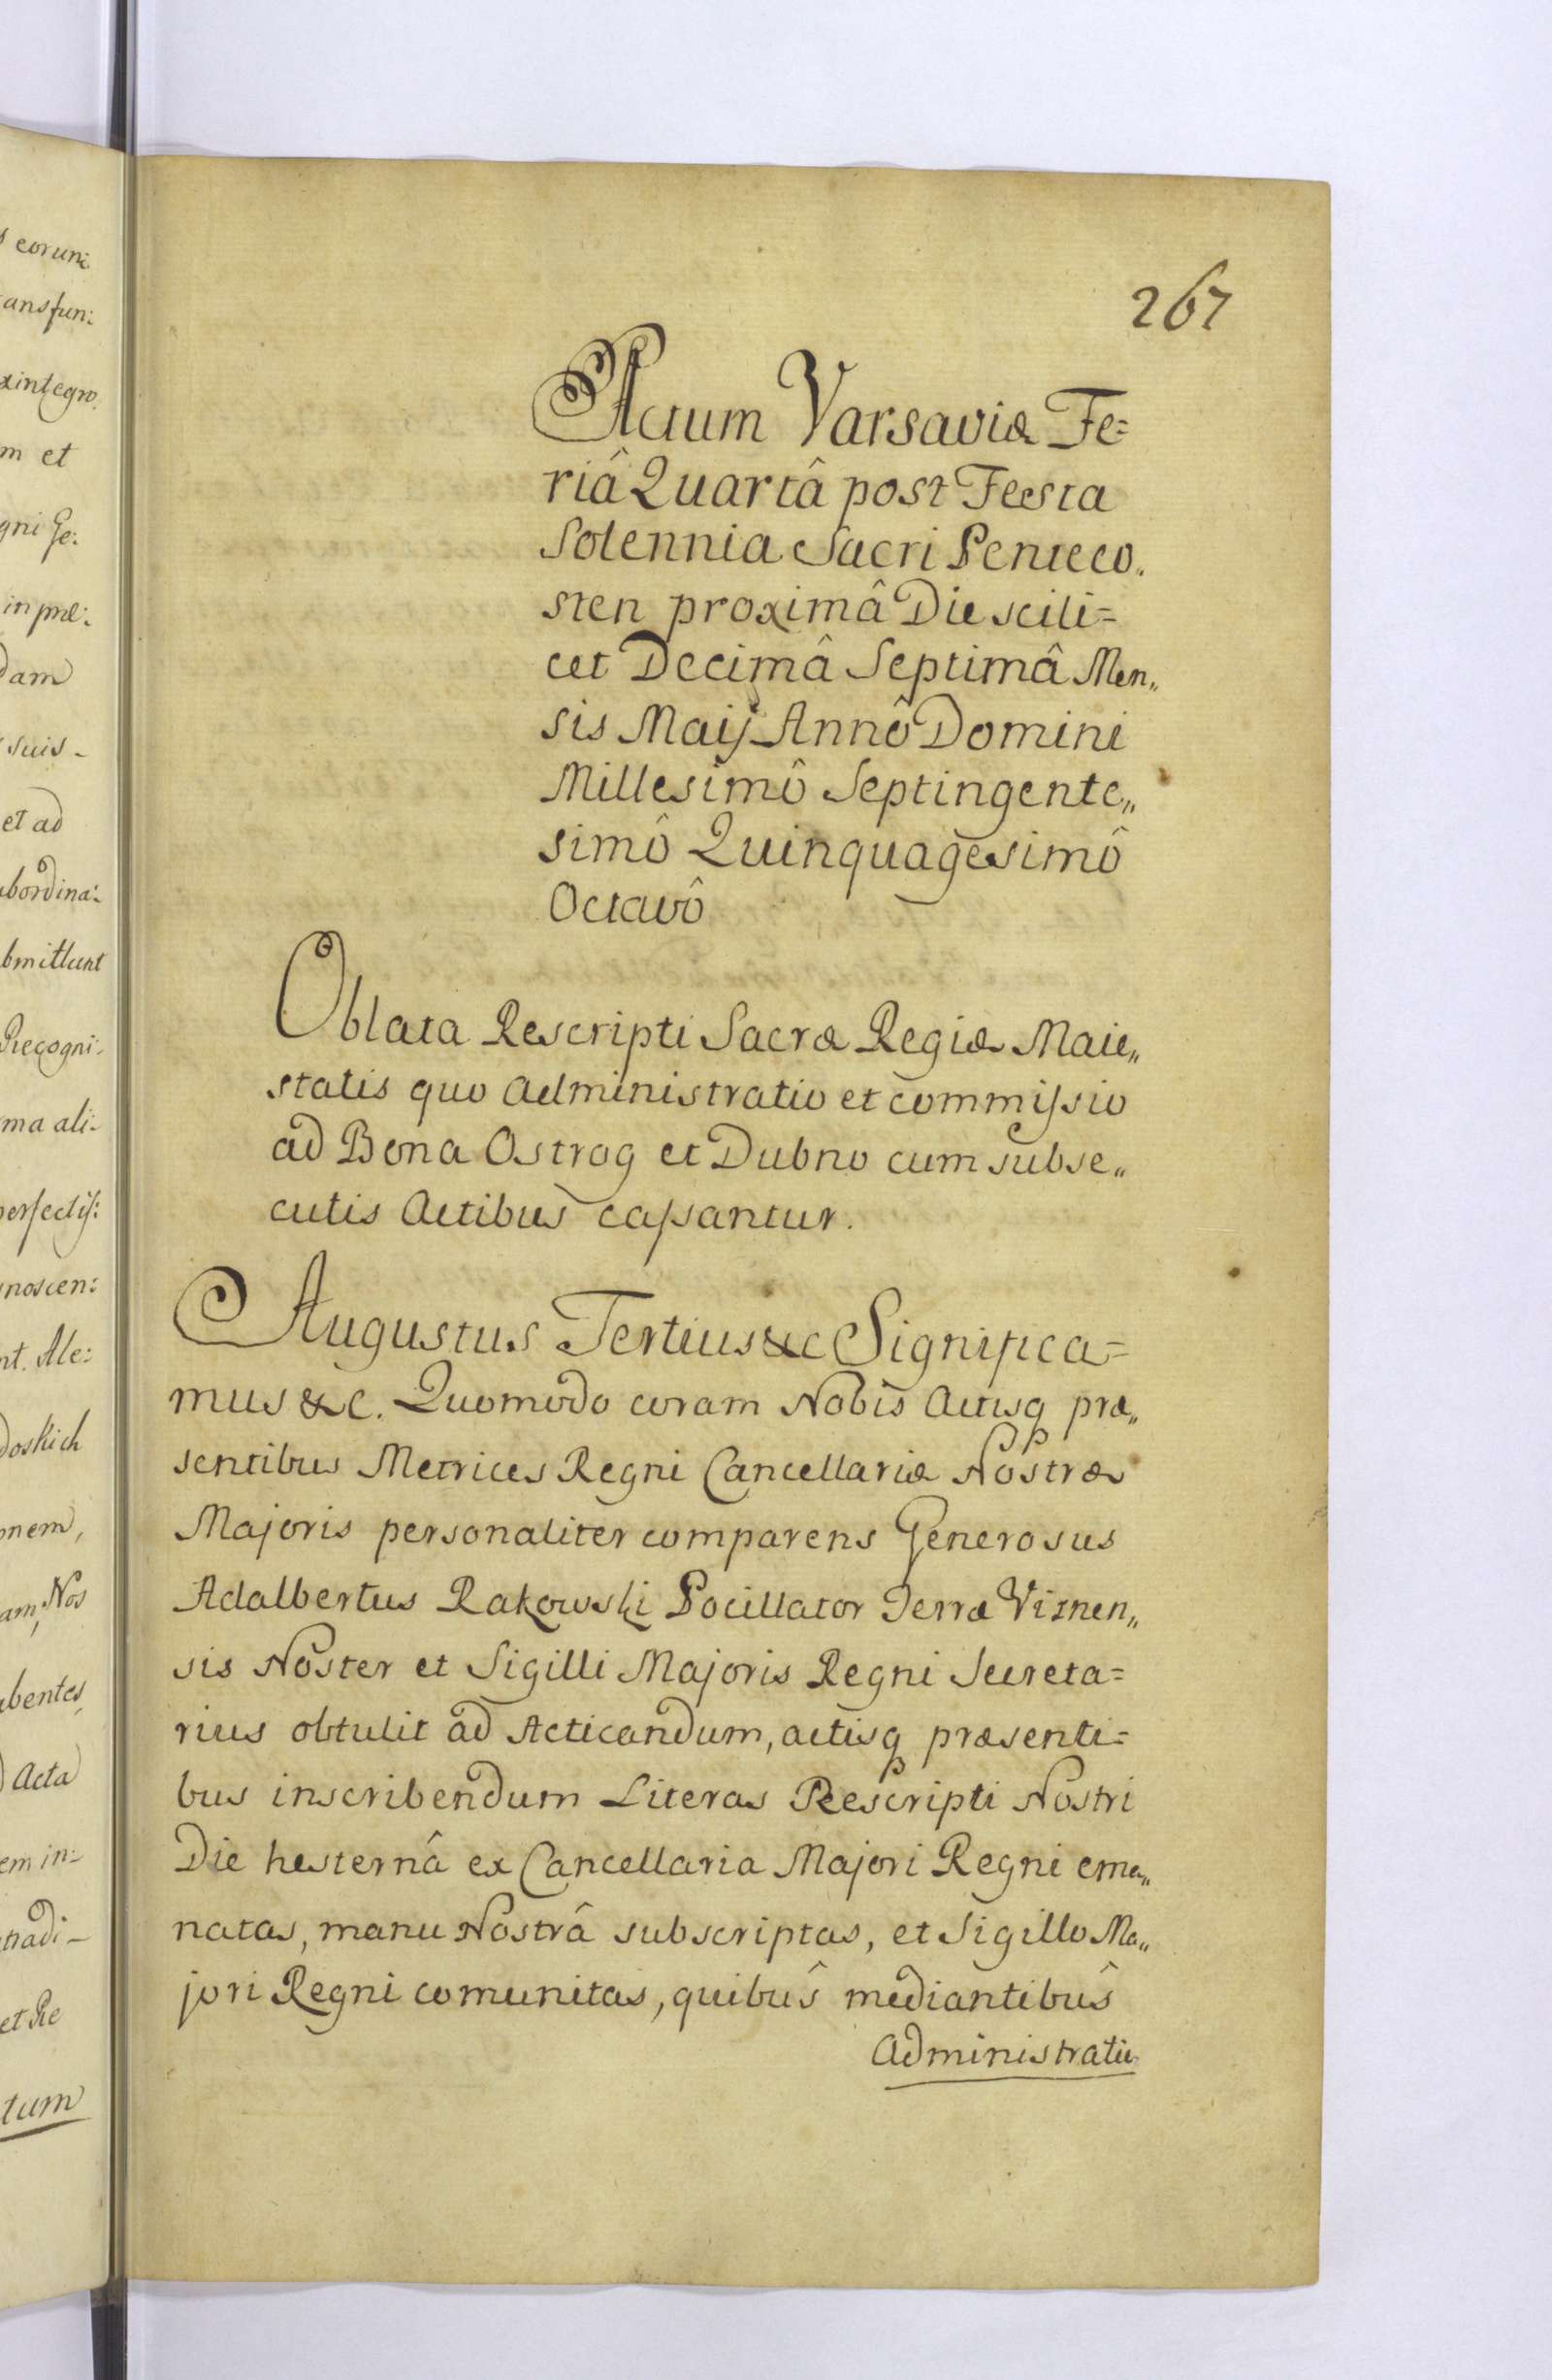 s eorum
ansfun:
xintegro.
m et
gni Ge:
in præ:
dam
suis -
et ad
bordina:
bmittunt
Recogni-
ma ali-
perfectiss:
noscen:
nt. Ale:
doskich
onem,
am, Nos
abentes,
Acta
em in:
tradi-
et Re
tum
267
Actum Varsaviæ Fe=
riâ Quartâ post Festa
Solennia Sacri Penteco.
sten proximâ Die scili=
cet Decimâ Septimâ Men„
sis Maij Annô Domini
Millesimô Septingente„
simô Quinquagesimô
Octavô
Oblata Rescripti Sacræ Regiæ Maie„
statis quo Administratio et commissio
ad Bona Ostrog et Dubno cum subse„
cutis Actibus cassantur.
Augustus Tertius &c Significa=
mus &c. Quomodo coram Nobis Actisq præ„
sentibus Metrices Regni Cancellariæ Nostræ
Majoris personaliter comparens Generosus
Adalbertus Rakowski Pocillator Terræ Viznen„
sis Noster et Sigilli Majoris Regni Secreta=
rius obtulit ad Acticandum, actisq præsenti=
bus inscribendum Literas Rescripti Nostri
Die hesternâ ex Cancellaria Majori Regni ema„
natas, manu Nostrâ subscriptas, et Sigillo Ma„
jori Regni comunitas, quibus̑ mediantibus̑
Administratio